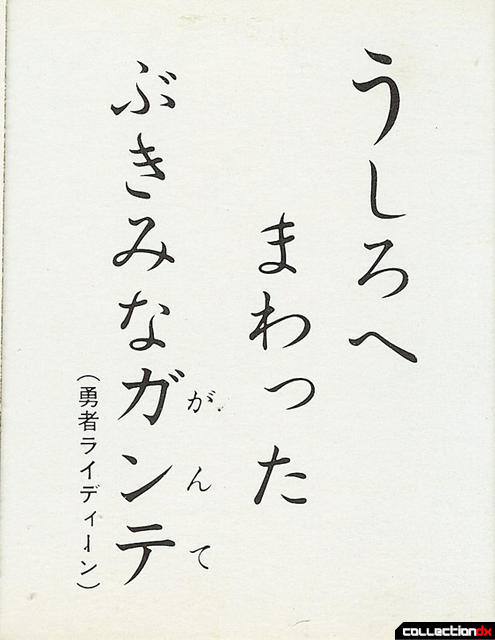 うしろへ
まわった
ぶきみなガンテ
がんて
(勇者ライディーン)
collectiondx